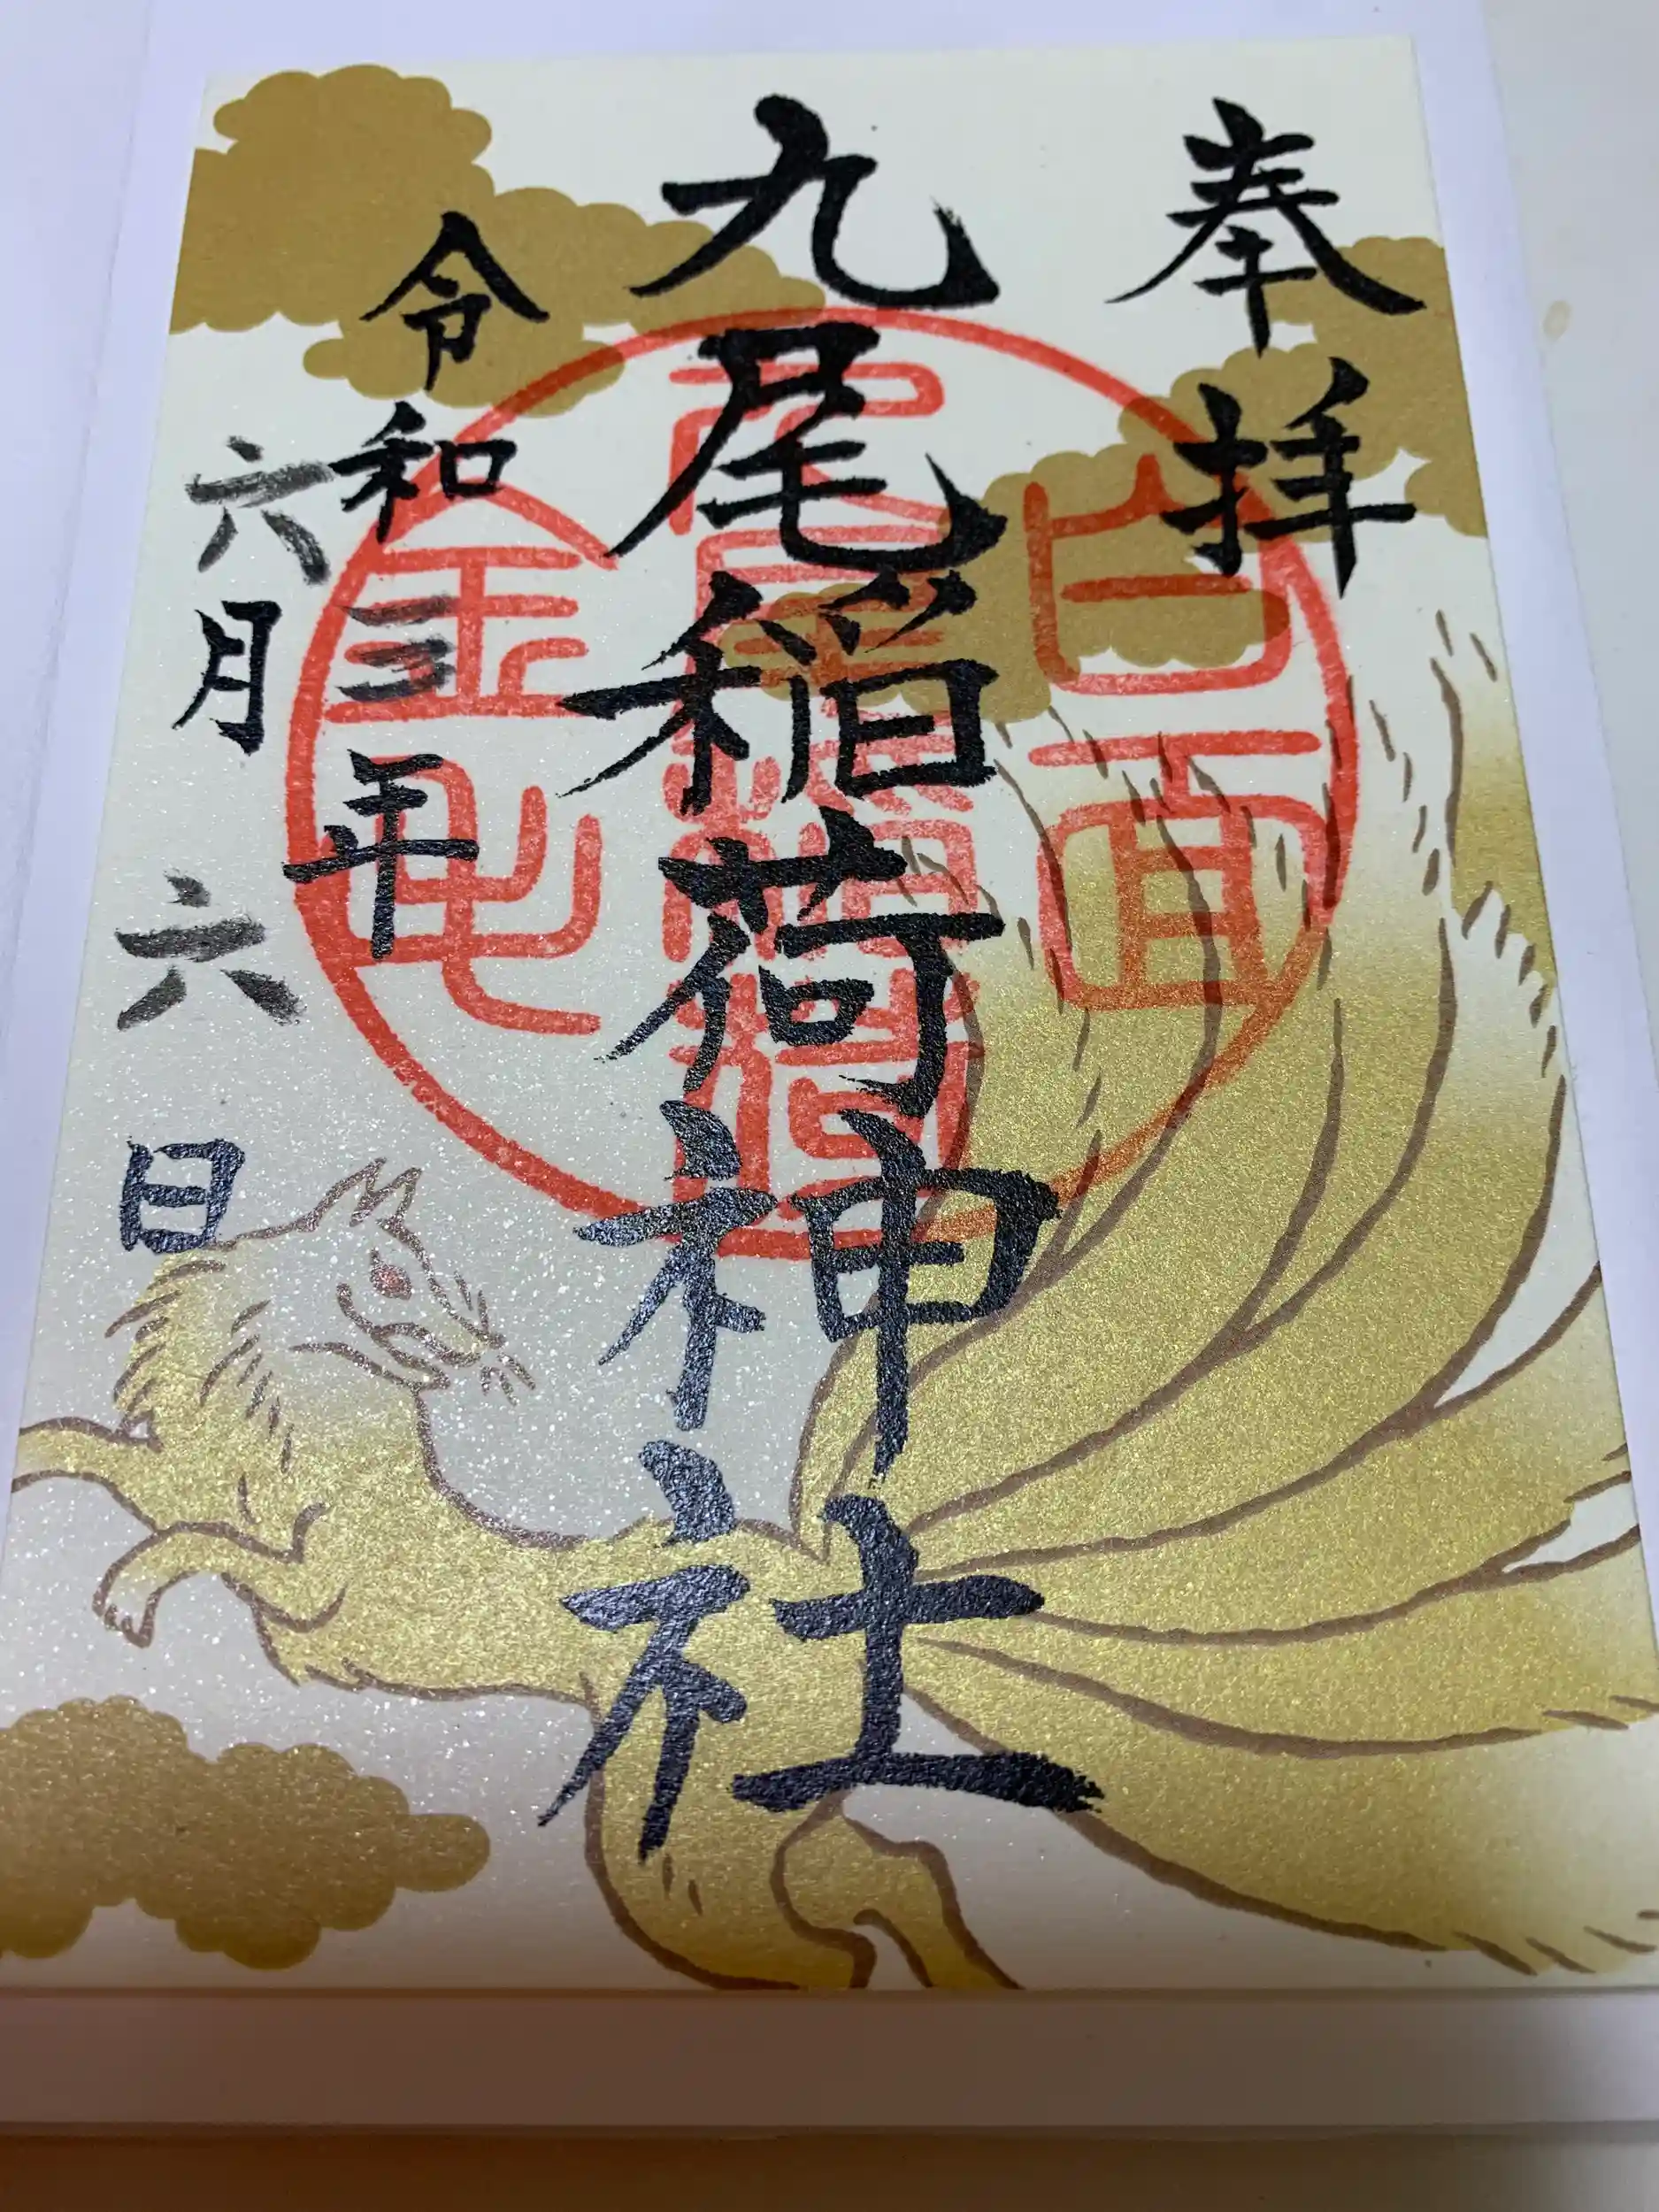 奉拝
九尾稲荷神社
令和三年
六月六日
白面
九尾稲荷
金毛